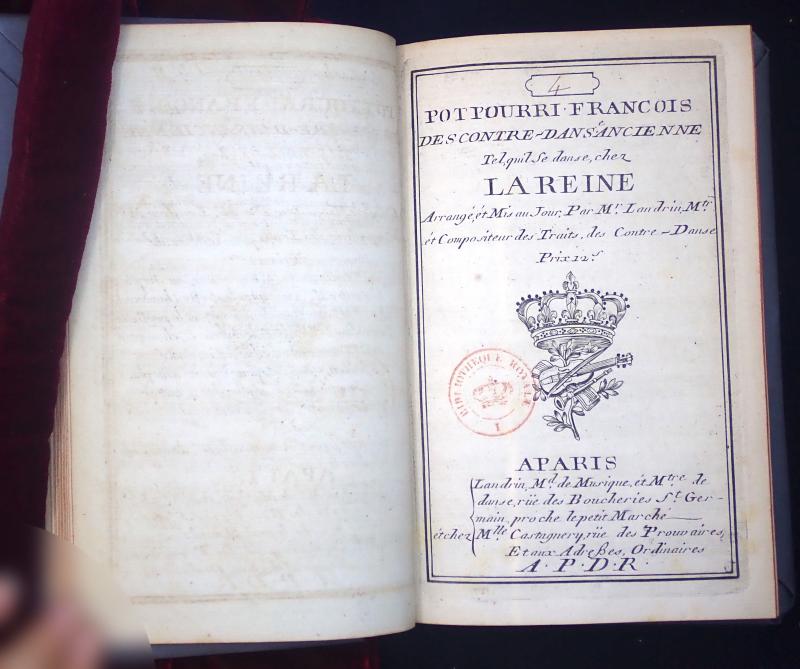 4
POTPOURRI·FRANCOIS
DES CONTRE-DANSE ANCIENNE
Tel, qu'il se danse, chez
LA REINE
Arrangé, ét Mis au Jour, Par Mr. Landrin, Mtre
ét Compositeur des Traits, des Contre-Danse
Prix 12 s
BIBLIOTHEQUE ROYALE
I
A PARIS
Landrin, Md. de Musique, ét Mtre de
danse, rüe des Boucheries St. Ger-
main, proche le petit Marché
ét chez Mlle Castagnery, rüe des Prouvaires,
Et aux Adreßes, Ordinaires
A·P·D·R·